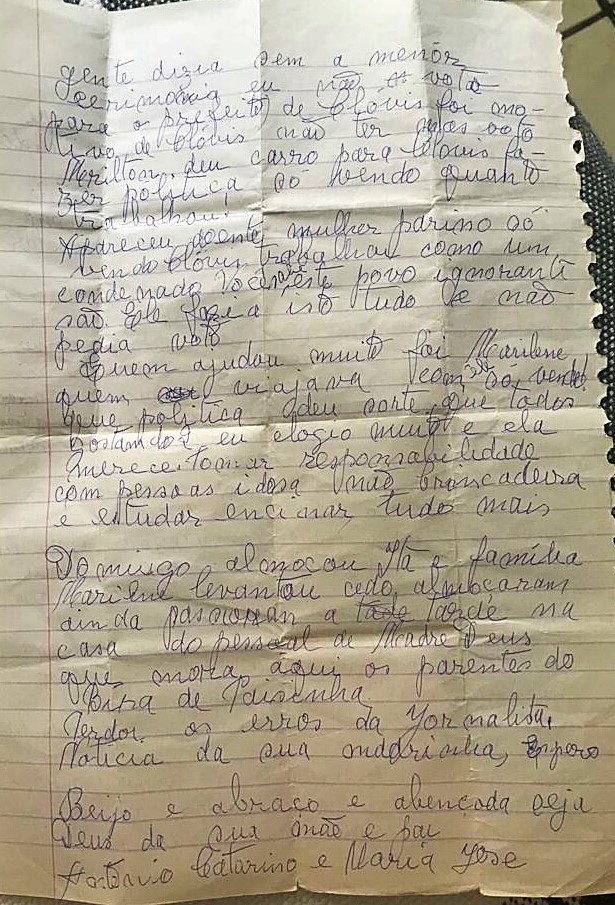 gente dizia sem a menor
cerimônig eu não voto
para o prefeito de Clóvis foi mo-
tivo de Clóvis não ter mas voto
Merilton deu carro para Clóvis fa-
zer política só vendo quanto
trabalhou!
Apareceu doente, mulher parino só
vendo Clóvis trabalhou como um
condenado este povo ignorante
são. Ele fazia isto tudo e não
pedia voto
Quem ajudou muito foi Marilene
quem viajava com ele só vendo
que politica deu sorte, que todos
gostam dos eu elogio muito e ela
merece. Tomar responsabilidade
com pessoas idosa não brincadeira
e estudar encinar, tudo mais
Domingo almoçou e família
Marilene levantou cedo, almoçaram
ainda passaram a tarde na
casa do pessoal de Madre Deus
que mora àqui os parentes do
de
Perdor os erros da Yornalista,
Noticia da sua madrinha, Espero
Beijo e abraço e abençada seja
Deus da sua mãe e pai
Antônio Catarino e Maria Jose